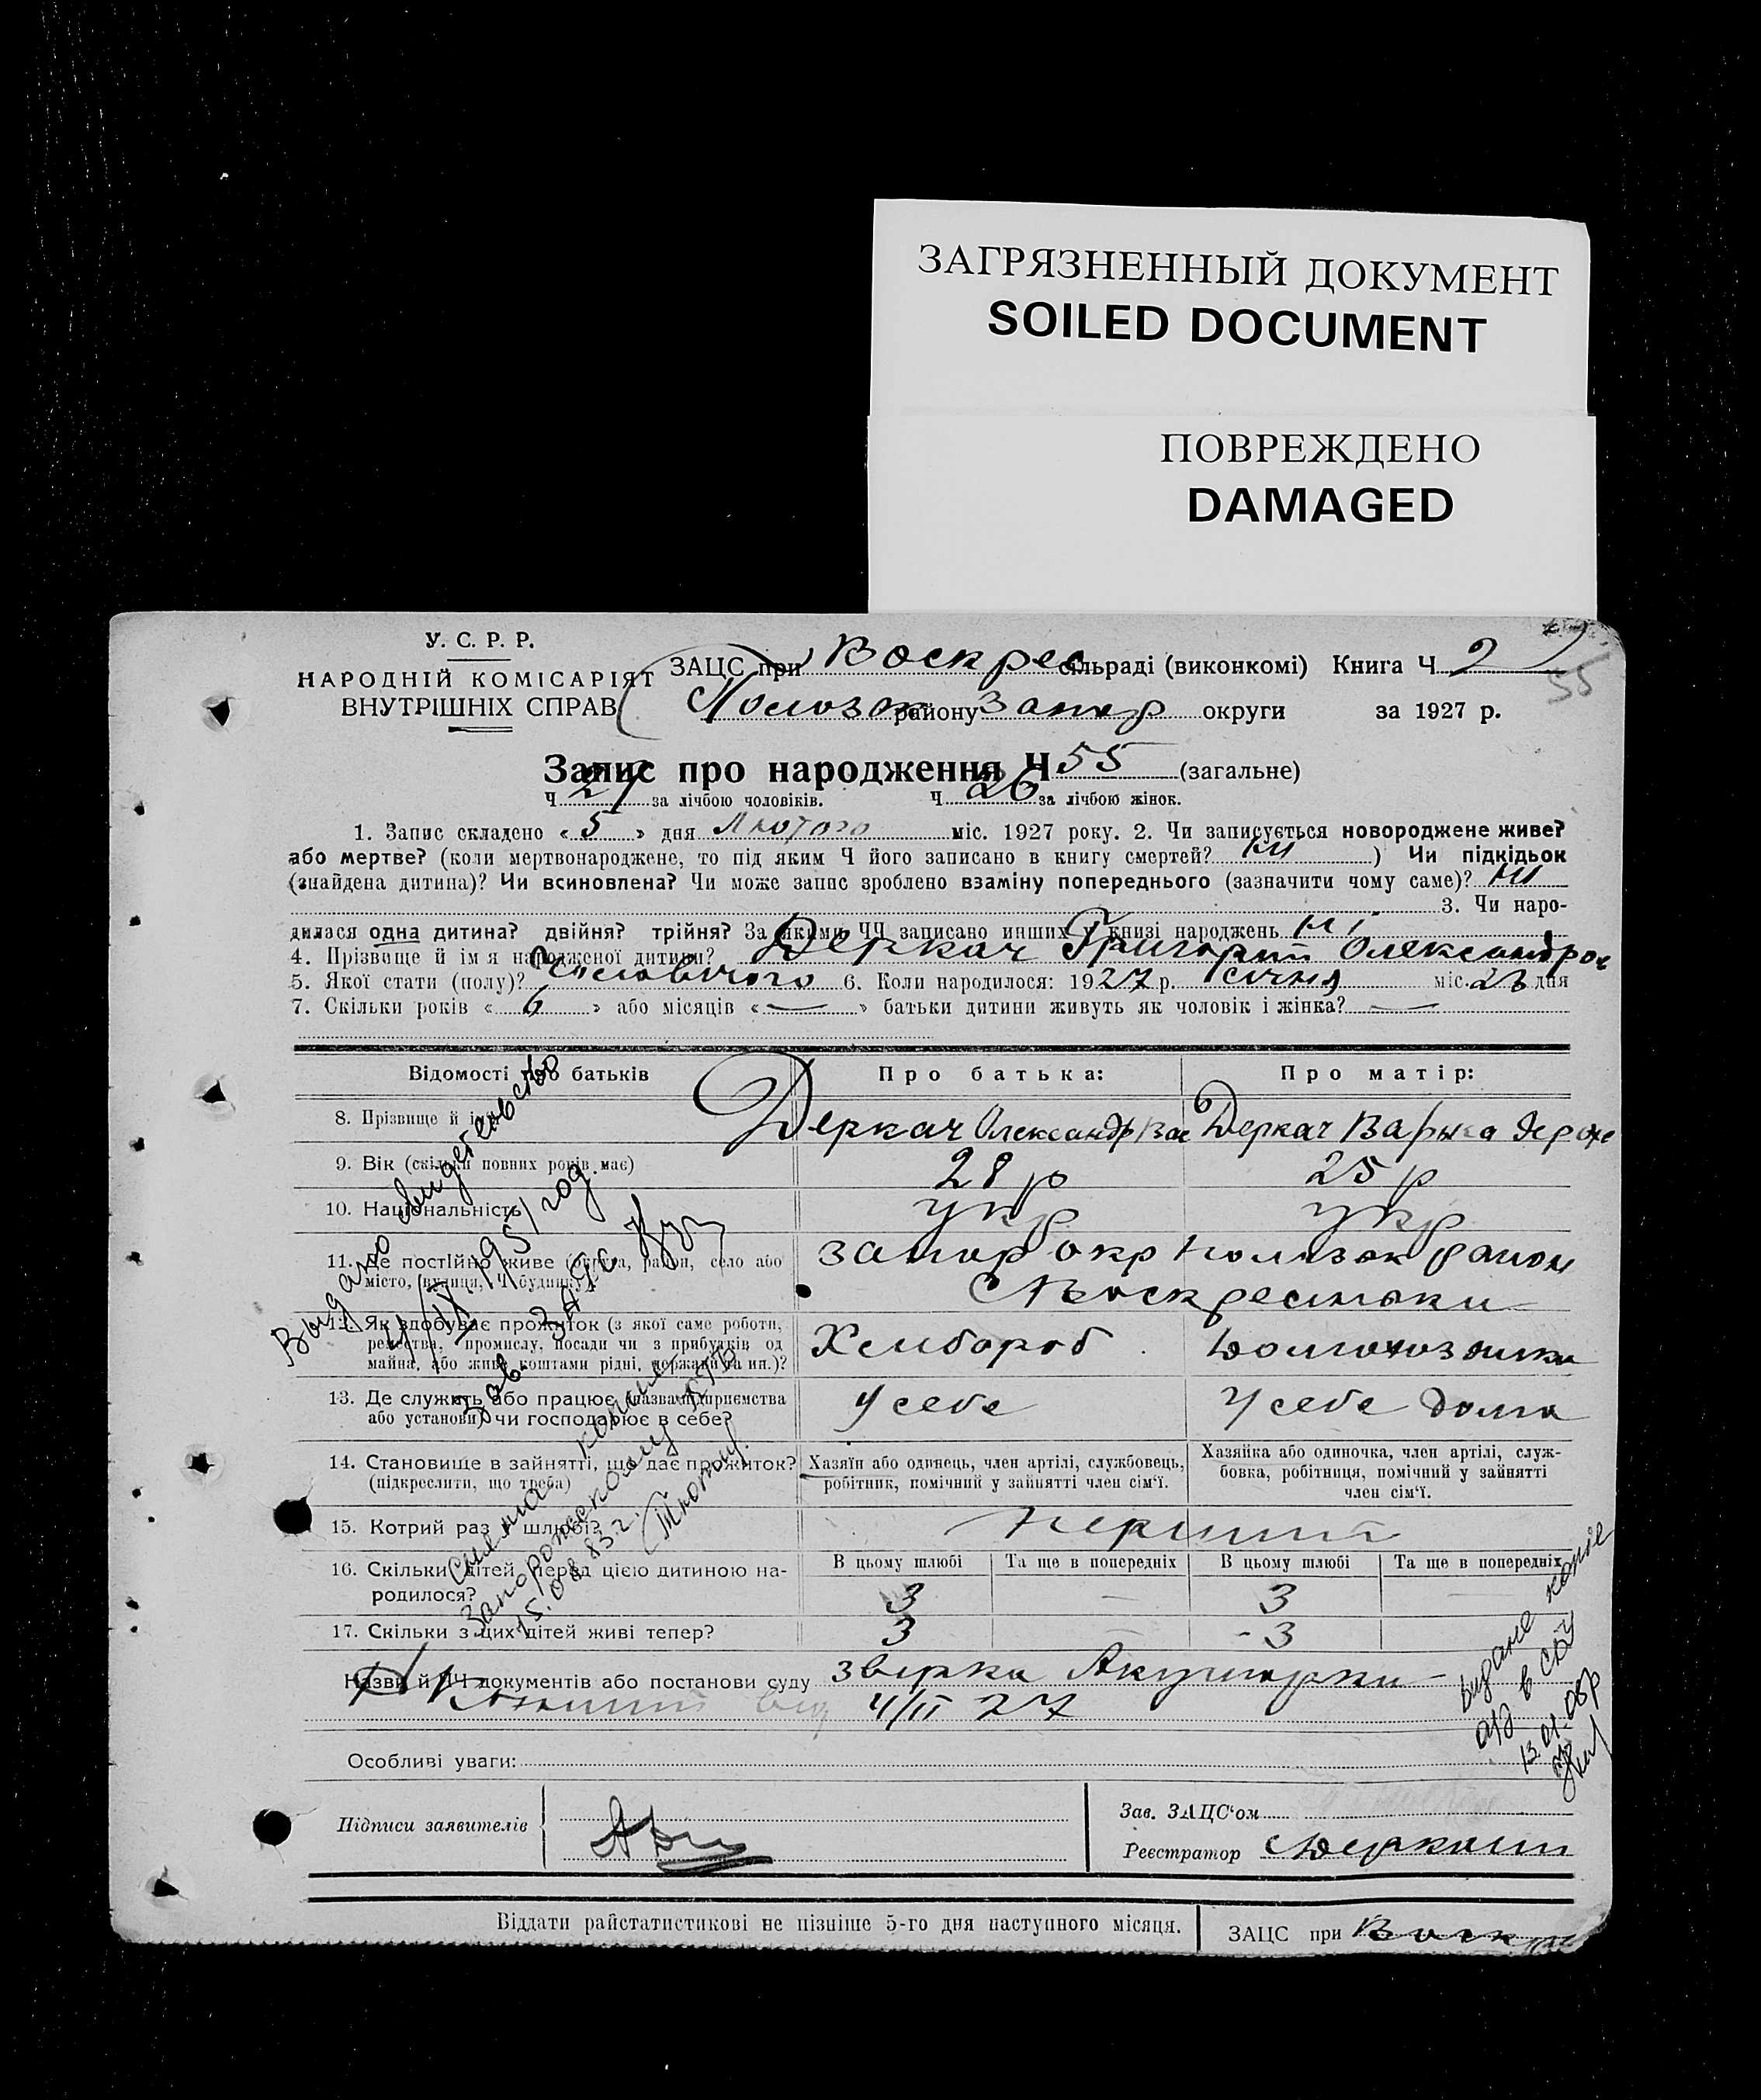 ЗАГРЯЗНЕННЫЙ ДОКУМЕНТ
SOILED DOCUMENT
ПОВРЕЖДЕНО
DAMAGED
У. С. Р. Р.
НАРОДНІЙ КОМІСАРІЯТ
ВНУТРІШНІХ СПРАВ
ЗАЦС при Воскрес сільраді (виконкомі) Книга Ч 2
55
району Запор округи за 1927 р.
Запис про народження Ч 55 (загальне)
Ч 29 за лічбою чоловіків. Ч 26 за лічбою жінок.
1. Запис складено « 5 » дня Лютого міс. 1927 року. 2. Чи записується новороджене живе?
або мертве? (коли мертвонароджене, то під яким Ч його записано в книгу смертей? ні ) Чи підкідьок
(знайдена дитина)? Чи всиновлена? Чи може запис зроблено взаміну попереднього (зазначити чому саме)? ні
3. Чи наро-
дилася одна дитина? двійня? трійня? За якими ЧЧ записано инших у книзі народжень ні
4. Прізвище й ім я народженої дитини? Деркач Григорий Олександров
5. Якої стати (полу)? Чоловічого 6. Коли народилося: 1927 р. січня міс. 28 дня
7. Скільки років « 6 » або місяців « — » батьки дитини живуть як чоловік і жінка? —
Відомості про батьків Про батька: Про матір:
8. Прізвище й ім'я Деркач Олександр Вас Деркач Варька
9. Вік (скільки повних років має) 28 р 25 р
10. Національність укр укр
11. Де постійно живе (округа, район, село або запор окр район
місто, вулиця, Ч будинку)?
12. Як здобуває прожиток (з якої саме роботи, Хлібороб
ремества, промислу, посади чи з прибутків од
майна, або живе коштами рідні, держави та ин.)?
13. Де служить або працює (назва підприємства У себе У себе дома
або установи) чи господарює в себе?
14. Становище в зайнятті, що дає прожиток? Хазяїн або одинець, член артілі, службовець, Хазяйка або одиночка, член артілі, служ-
(підкреслити, що треба) робітник, помічний у зайнятті член сім'ї. бовка, робітниця, помічний у зайнятті
член сім'ї.
15. Котрий раз у шлюбі? перший
16. Скільки дітей перед цією дитиною на- В цьому шлюбі Та ще в попередніх В цьому шлюбі Та ще в попередніх
родилося? 3 — 3 —
17. Скільки з цих дітей живі тепер? 3 — 3
Назви й ЧЧ документів або постанови суду Акушорки
від 4/II 27
Особливі уваги:
Підписи заявителів
Зав. ЗАЦС'ом
Реєстратор
Віддати райстатистикові не пізніше 5-го дня наступного місяця. ЗАЦС при Воскрес
Выдано свидетельство
4/IX 1951 год
Зав. Загс
Снята копия
Запорожскому
15.08.83 г.
Видане копіє
13.01.08р